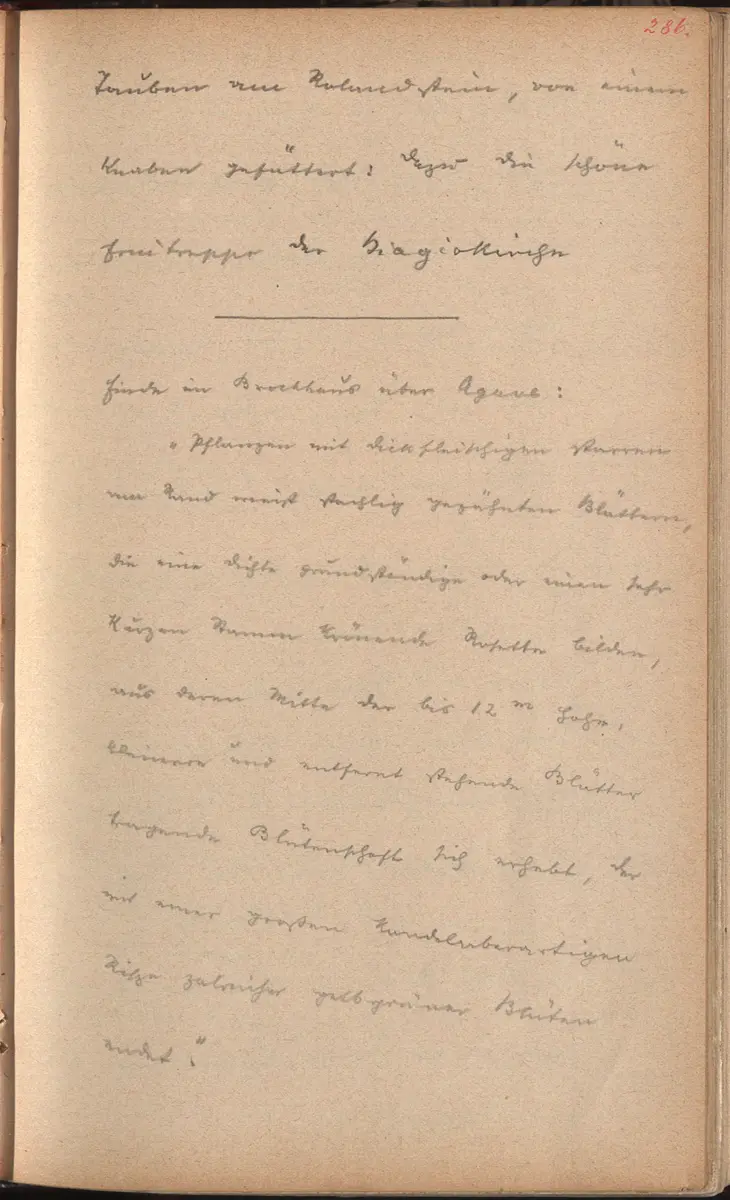 286.
Tauben am Rolandstein, von einem
Knaben gefüttert: dazu die schöne
Freitreppe der Biagiokirche
Finde im Brockhaus über Agave:
„Pflanzen mit dickfleischigen starren
am Rand meist stachlig gezähnten Blättern,
die eine dichte grundständige oder einen sehr
kurzen Stamm krönende Rosette bilden,
aus deren Mitte der bis 12 m hohe,
kleinere und entfernt stehende Blätter
tragende Blütenschaft sich erhebt, der
mit einer großen kandelaberartigen
Rispe zalreicher gelbgrüner Blüten
endet."